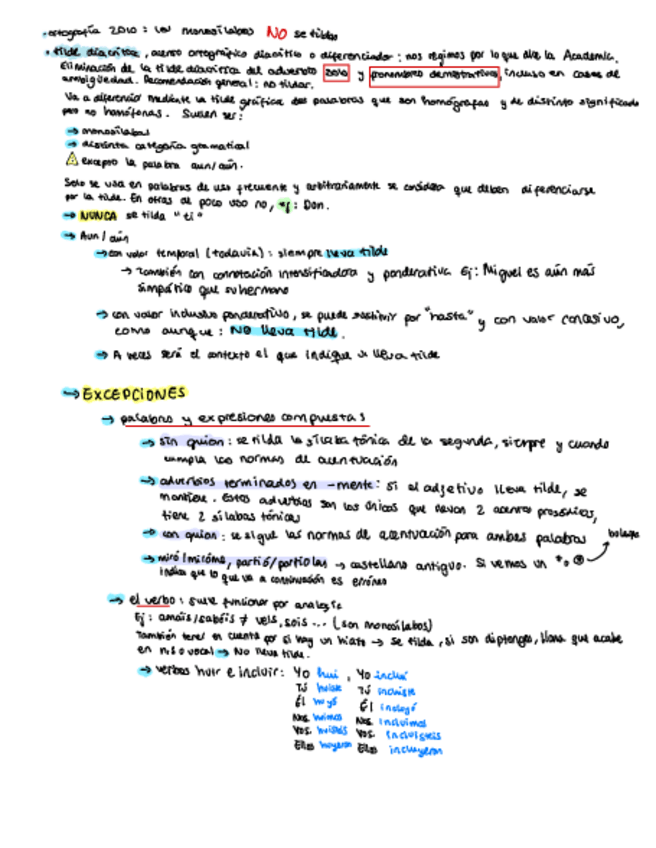 • ortografía 2010: los monosílabos NO se tildan
• tilde diacrítica, acento ortográfico diacrítico o diferenciador: nos regimos por lo que dice la Academia.
Eliminación de la tilde diacrítica del adverbio solo y pronombres demostrativos, incluso en casos de
ambigüedad. Recomendación general: no tildar.
Va a diferenciar mediante la tilde gráfica dos palabras que son homógrafas y de distinto significado
pero no homófonas. Suelen ser:
→ monosílabas
→ distinta categoría gramatical
⚠ excepto la palabra aun/aún.
Solo se usa en palabras de uso frecuente y arbitrariamente se considera que deben diferenciarse
por la tilde. En otras de poco uso no, ej: Don.
→ NUNCA se tilda "ti"
→ Aun/aún
→ con valor temporal (todavía): siempre lleva tilde
→ También con connotación intensificadora y ponderativa Ej: Miguel es aún más
simpático que su hermano
→ con valor inclusivo ponderativo, se puede sustituir por "hasta" y con valor concesivo,
como aunque: NO lleva tilde.
→ A veces será el contexto el que indique si lleva tilde
→ EXCEPCIONES
→ palabras y expresiones compuestas
→ sin guion: se tilda la sílaba tónica de la segunda, siempre y cuando
cumpla las normas de acentuación
→ adverbios terminados en -mente: si el adjetivo lleva tilde, se
mantiene. Estos adverbios son los únicos que llevan 2 acentos prosódicos,
tiene 2 sílabas tónicas
→ con guion: se sigue las normas de acentuación para ambas palabras
→ miró/miróme, partió/partiolas → castellano antiguo. Si vemos un * o
indica que lo que va a continuación es erróneo
→ el verbo: suele funcionar por analogía
Ej: amáis/sabéis ≠ veis, sois ... (son monosílabos)
También tener en cuenta por si hay un hiato → se tilda, si son diptongos, llana que acabe
en n, s o vocal → No lleva tilde.
→ verbos huir e incluir: Yo hui, Yo incluí
Tú huiste Tú incluiste
Él huyó Él incluyó
Nos. huimos Nos. incluimos
Vos. huisteis Vos. incluisteis
Ellos huyeron Ellos incluyeron